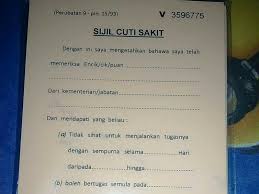 (Perubatan 9 - pin. 15/93)
V 3596775
SIJIL CUTI SAKIT
Dengan ini saya mengesahkan bahawa saya telah
memeriksa Encik/cik/puan
Dari kementerian/jabatan
Dan mendapati yang beliau :
(a) Tidak sihat untuk menjalankan tugasnya
dengan sempurna selama Hari
daripada hingga
(b) boleh bertugas semula pada